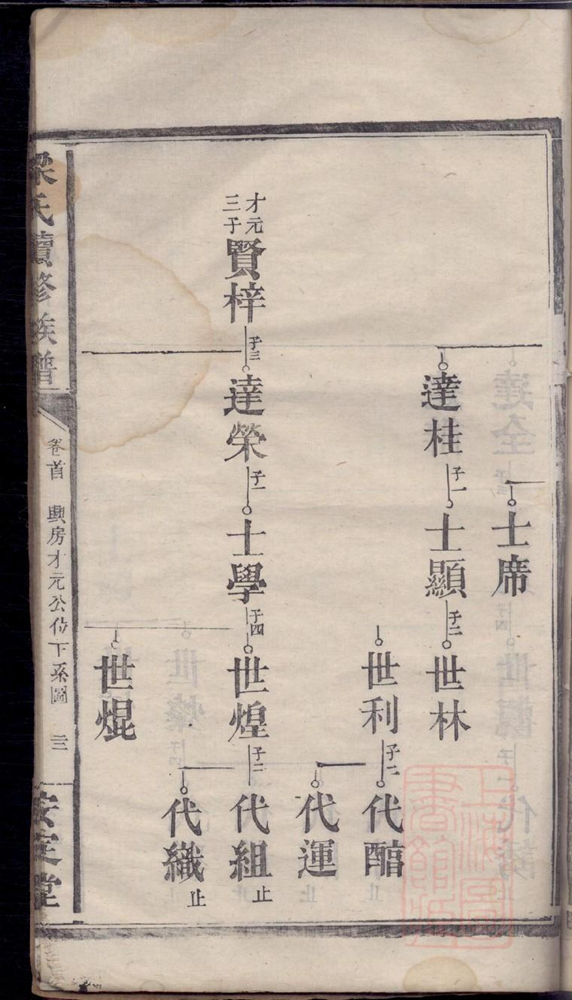 士席
達桂
子一
士顯
子二
世林
世利
子二
代醕
止
代運
止
才元
三子
賢梓
子三
達榮
子一
士學
子四
世煌
子二
代組
止
代織
止
世焜
梁氏續修族譜
卷首
興房才元公位下系圖
三
安定堂
上海圖書館藏